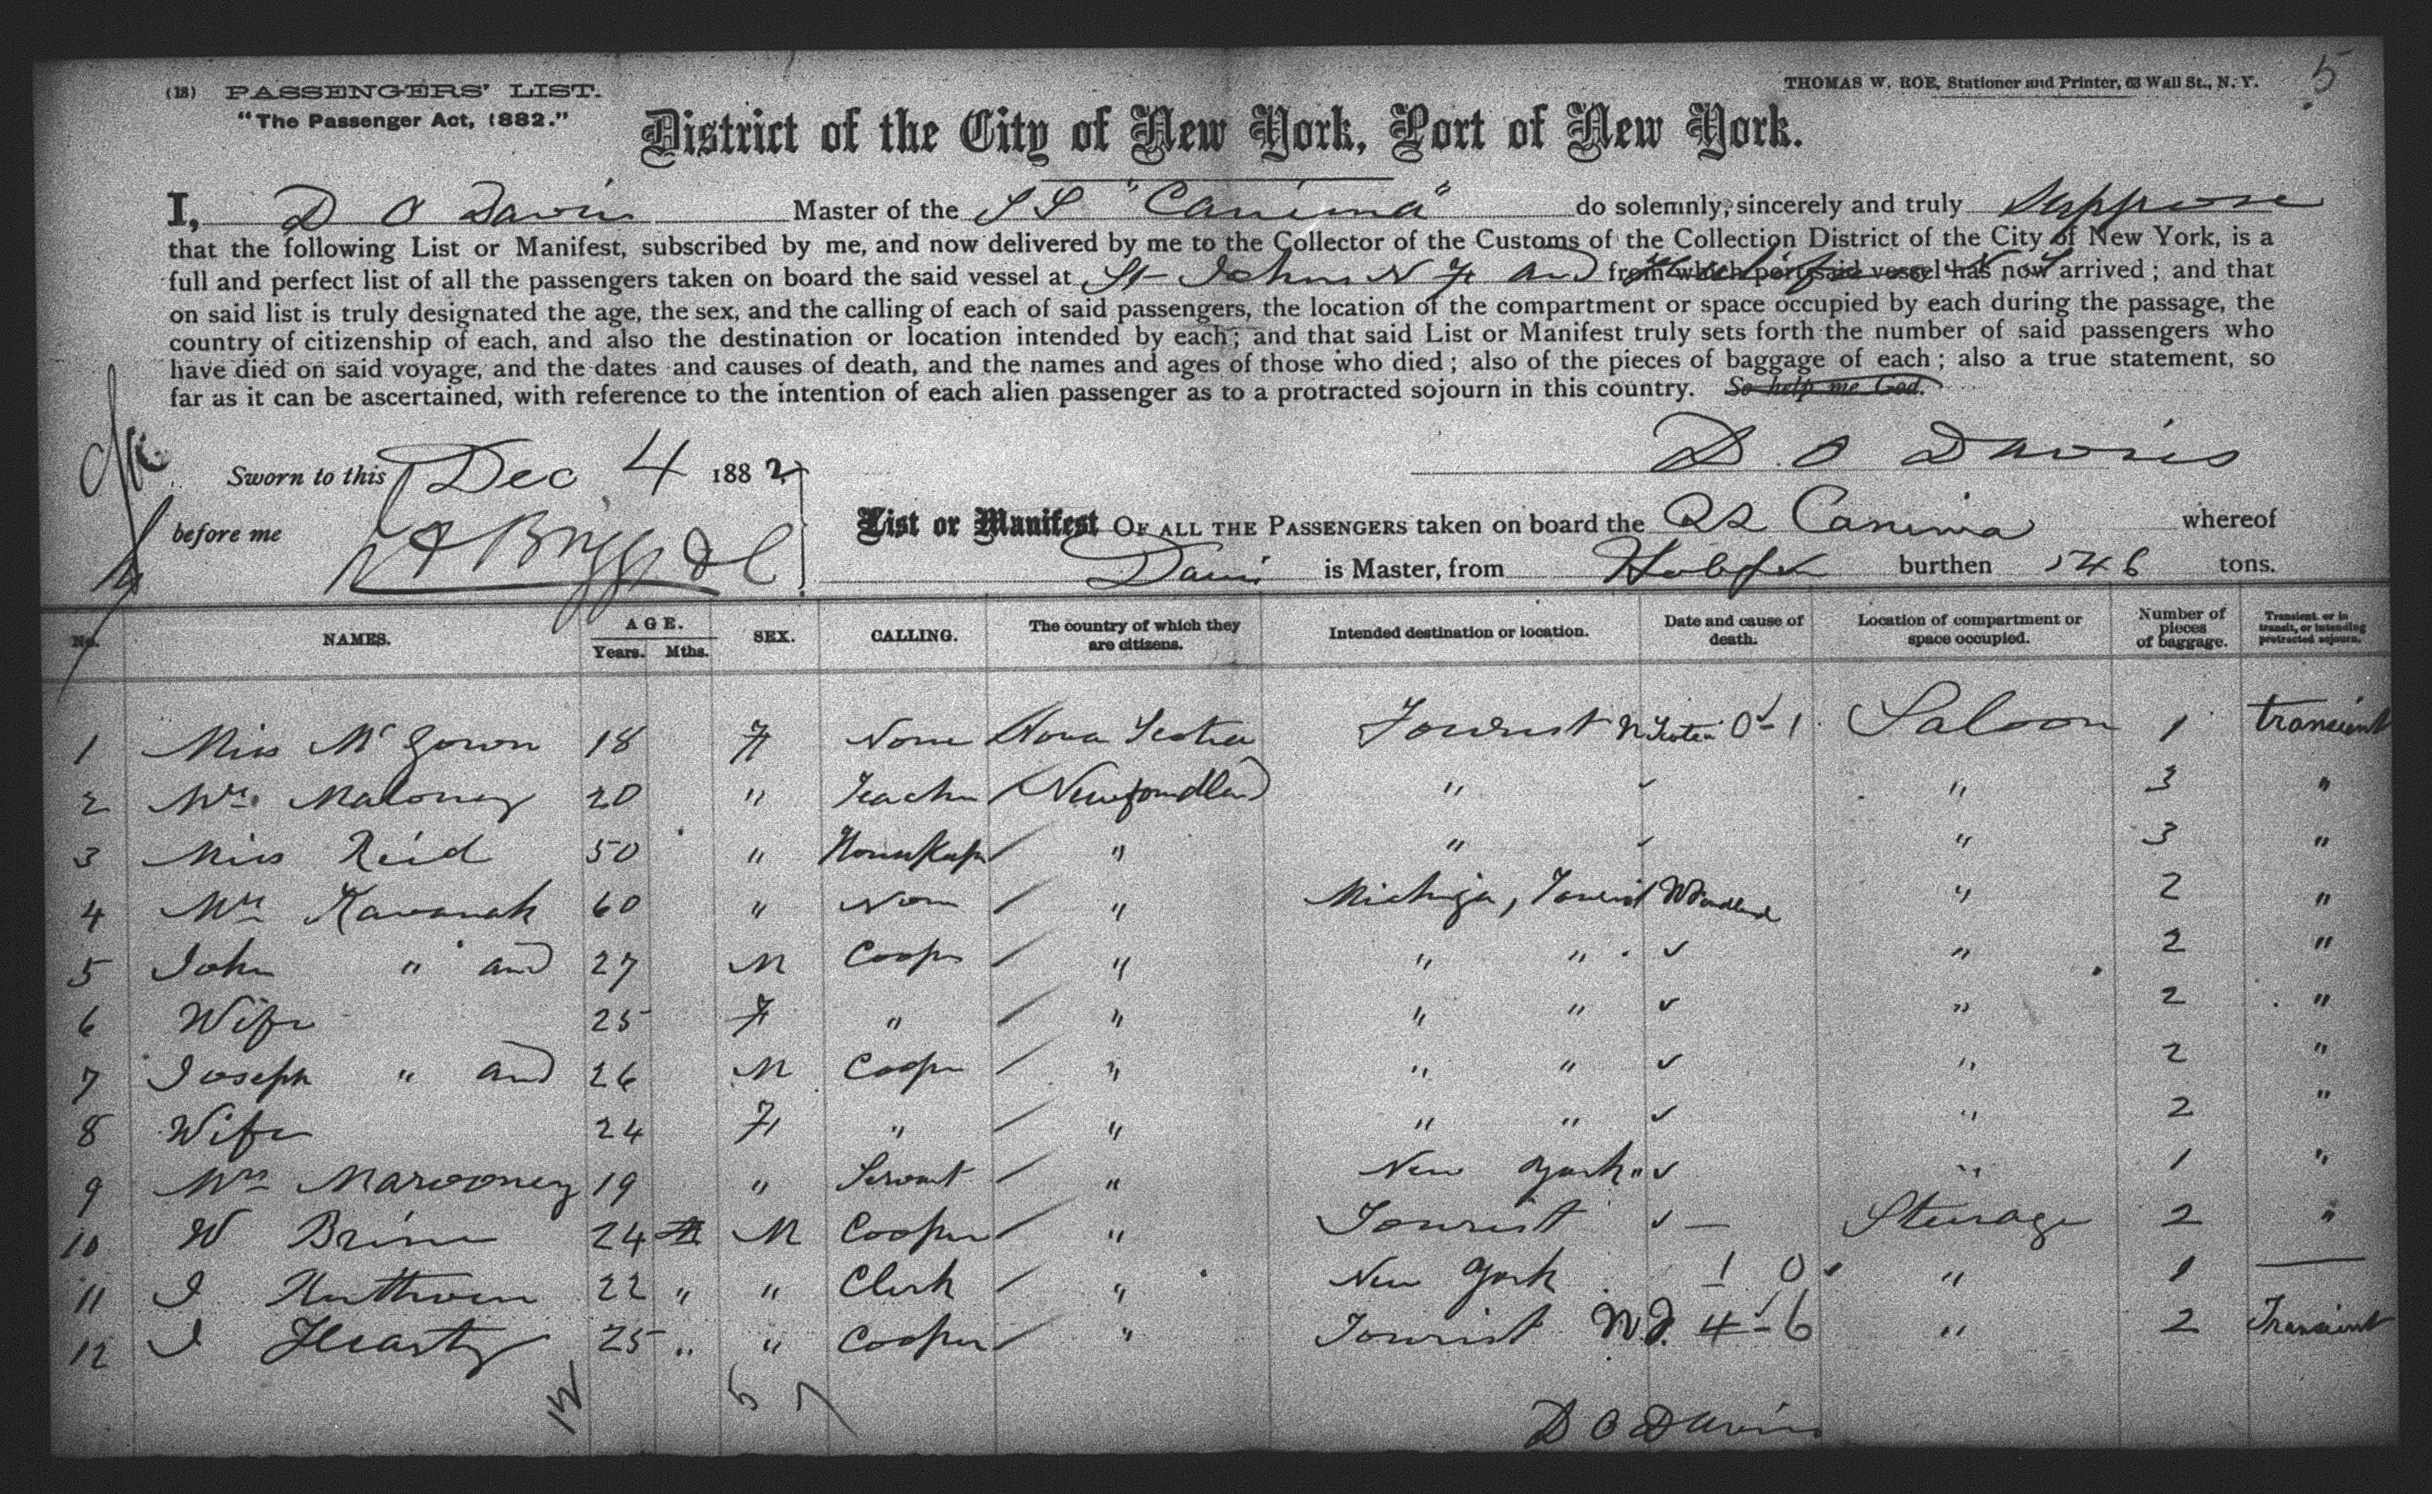 (18) PASSENGERS' LIST.
"The Passenger Act, 1882."
THOMAS W. ROE, Stationer and Printer, 63 Wall St., N. Y.
5
District of the City of New York, Port of New York.
I, D O Davis Master of the SS "Canima" do solemnly, sincerely and truly Suppose
that the following List or Manifest, subscribed by me, and now delivered by me to the Collector of the Customs of the Collection District of the City of New York, is a
full and perfect list of all the passengers taken on board the said vessel at St Johns N F and from which port said vessel has now arrived; and that
on said list is truly designated the age, the sex, and the calling of each of said passengers, the location of the compartment or space occupied by each during the passage, the
country of citizenship of each, and also the destination or location intended by each; and that said List or Manifest truly sets forth the number of said passengers who
have died on said voyage, and the dates and causes of death, and the names and ages of those who died; also of the pieces of baggage of each; also a true statement, so
far as it can be ascertained, with reference to the intention of each alien passenger as to a protracted sojourn in this country. So help me God.
D. O Davis
Sworn to this Dec 4 1882
before me Briggs
List or Manifest OF ALL THE PASSENGERS taken on board the SS Canima whereof
Davis is Master, from Halifx burthen 546 tons.
No. NAMES. AGE. Years. Mths. SEX. CALLING. The country of which they are citizens. Intended destination or location. Date and cause of death. Location of compartment or space occupied. Number of pieces of baggage. Transient or in transit, or intending protracted sojourn.
1 Miss McGown 18 F None Nova Scotia Tourist N Scotia 0-1 Saloon 1 transient
2 Mrs Maloney 20 " Teacher Newfoundland " " 3 "
3 Miss Reid 50 " " " " 3 "
4 Mrs Kavanah 60 " None " Michiga, Tourist " 2 "
5 John " and 27 M Cooper " " " " 2 "
6 Wife 25 F " " " " " 2 "
7 Joseph " and 26 M Cooper " " " " 2 "
8 Wife 24 F " " " " " 2 "
9 Mrs Marooney 19 " Servant " New York " " 1 "
10 W Brine 24 M Cooper " Tourist — Steerage 2 "
11 J Ruthven 22 " " Clerk " New York 1 0 " 1 —
12 J Hearty 25 " " Cooper " Tourist N.F. 4-6 " 2 Transient
12 5 7
D O Davis